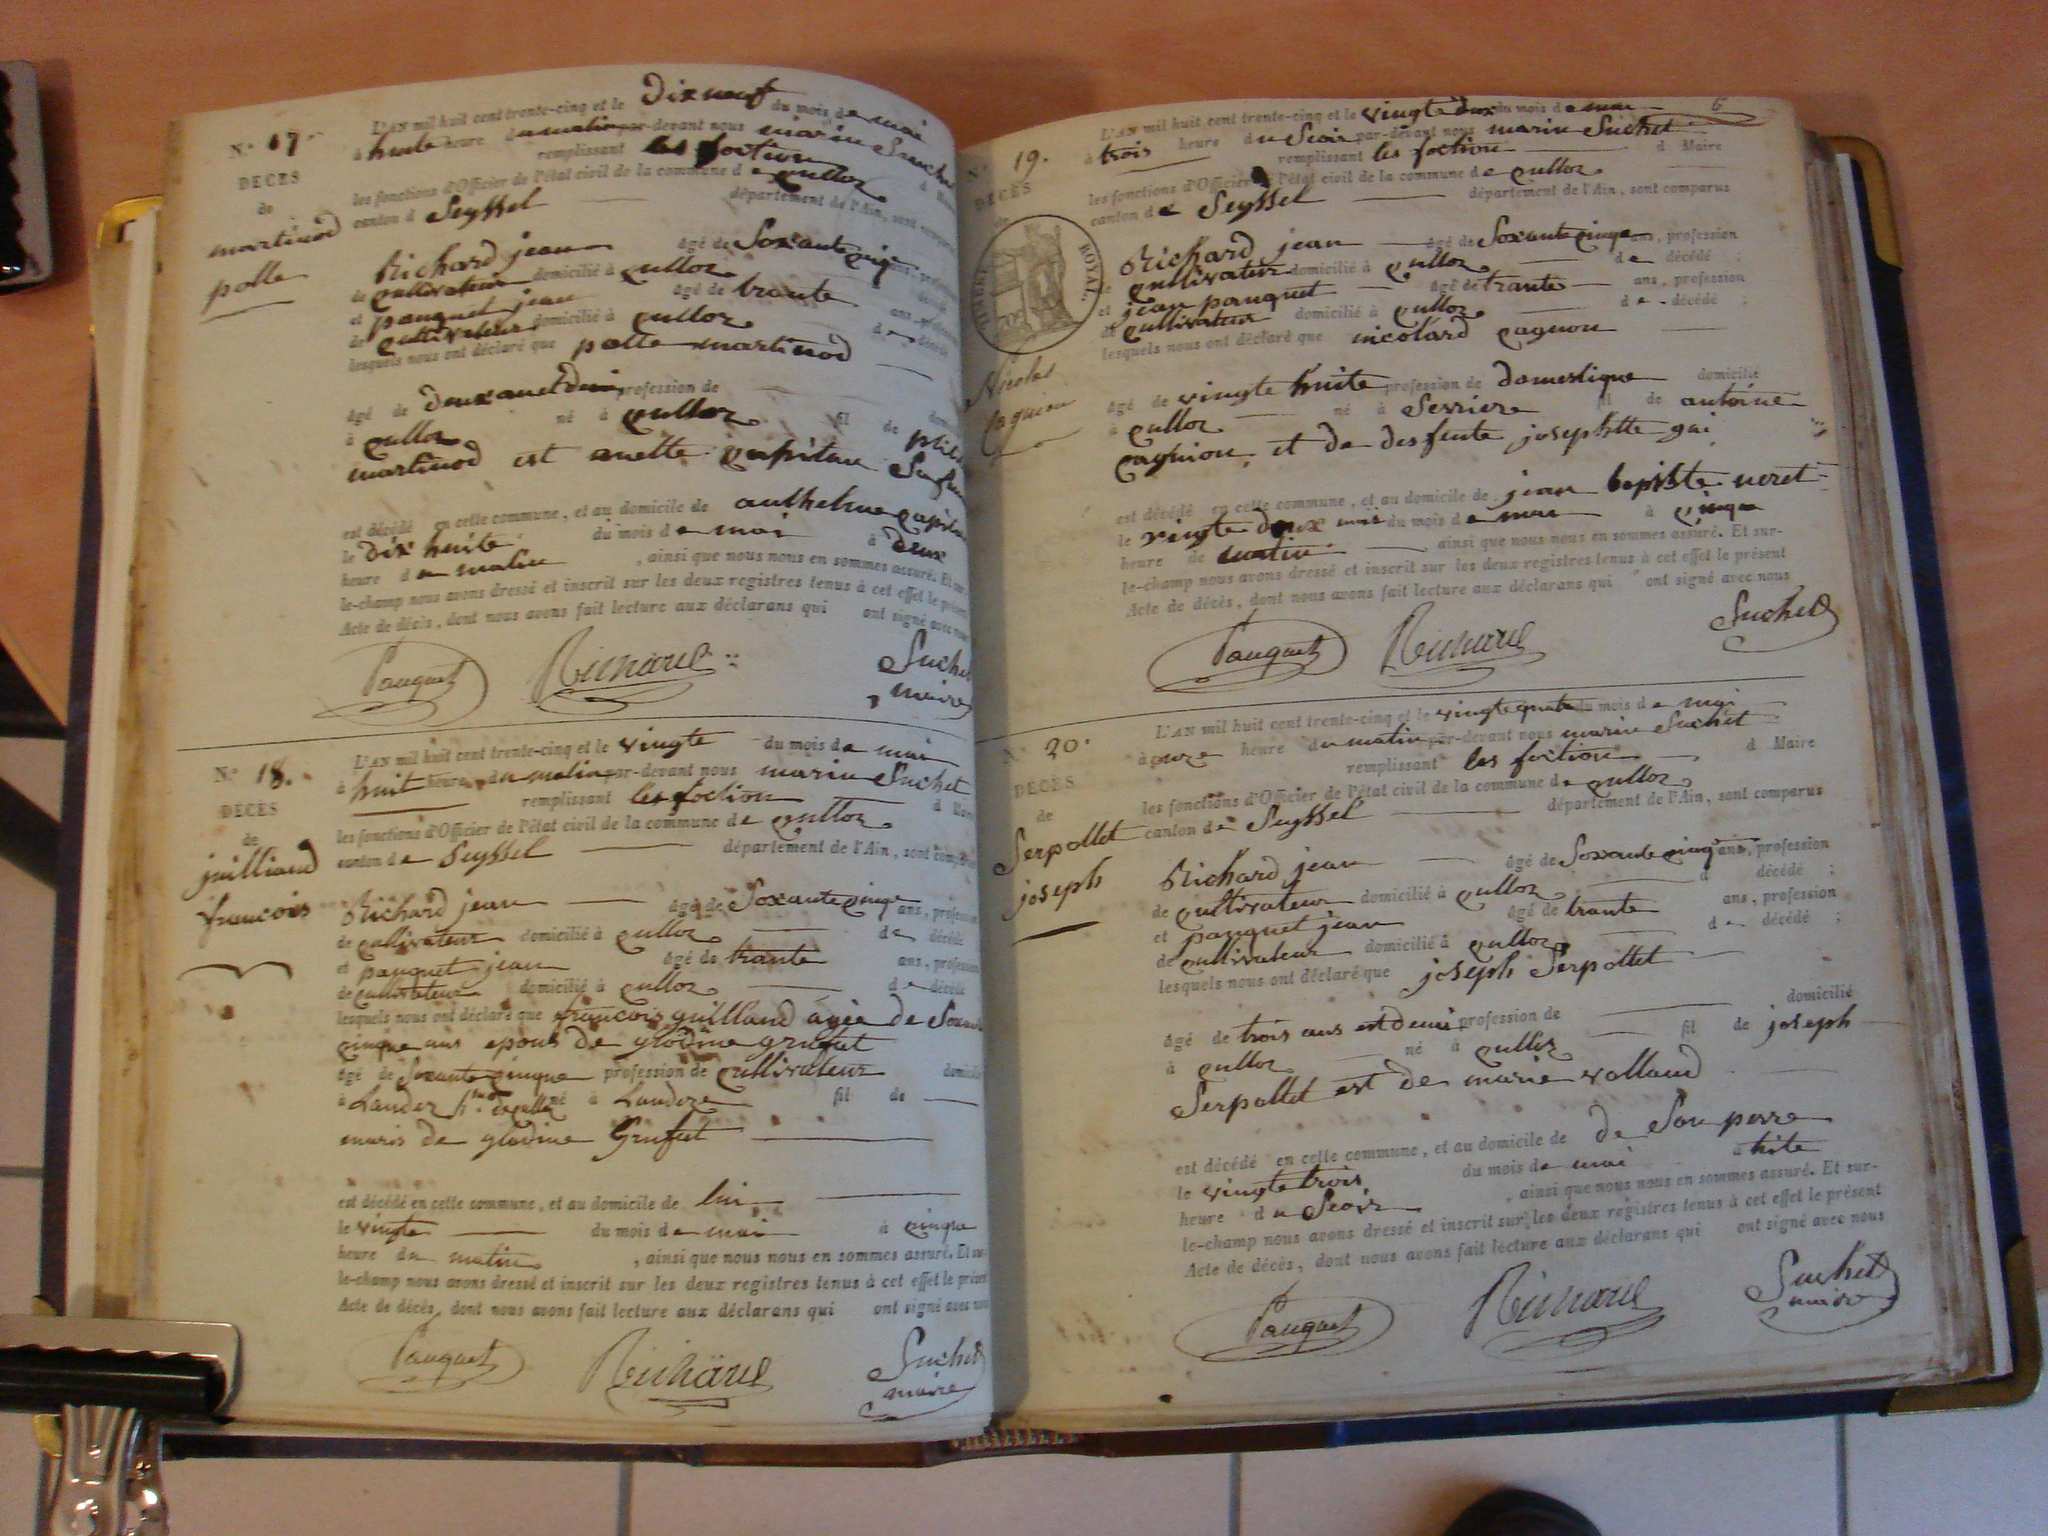 N.º 17
DECES
de
martinod
polle
L'AN mil huit cent trente-cinq et le Dix neuf du mois de mai
à huite heure du matin par-devant nous marin Suchet
remplissant les foction d
les fonctions d'Officier de l'état civil de la commune de qulloz
canton de Seyssel département de l'Ain, sont comparus
Richard jean âgé de Soxante qinqe ans, profession
de qultivateur domicilié à qulloz décédé
et pauquet jean âgé de trante ans, profession
de qultivateur domicilié à qulloz de décédé
lesquels nous ont déclaré que polle martinod
âgé de deux an et demi profession de
à qulloz né à qulloz fil de
martinod est anette qapitan
est décédé en cette commune, et au domicile de anthelme qapitan
le Dix huite du mois de mai à deux
heure du matin , ainsi que nous nous en sommes assuré. Et sur-
le-champ nous avons dressé et inscrit sur les deux registres tenus à cet effet le présent
Acte de décès, dont nous avons fait lecture aux déclarans qui ont signé avec nous
Pauquet Richard Suchet
maire
N.º 18.
DECES
de
juilliand
francois
L'AN mil huit cent trente-cinq et le vingte du mois de mai
à huit heure du matin par-devant nous marin Suchet
remplissant les foction d
les fonctions d'Officier de l'état civil de la commune de qulloz
canton de Seyssel département de l'Ain, sont comparus
Richard jean âgé de Soxante qinqe ans, profession
de qultivateur domicilié à qulloz de décédé
et pauquet jean âgé de trante ans, profession
de qultivateur domicilié à qulloz de décédé
lesquels nous ont déclaré que francois guilland agée de Soxante
qinque ans epous de glodine grufut
âgé de Soxante qinque profession de qultivateur domicilié
à Landez né à Landeze fil de
maris de glodine Grufut
est décédé en cette commune, et au domicile de lui
le vingte du mois de mai à qinque
heure du matin , ainsi que nous nous en sommes assuré. Et sur-
le-champ nous avons dressé et inscrit sur les deux registres tenus à cet effet le présent
Acte de décès, dont nous avons fait lecture aux déclarans qui ont signé avec nous
Pauquet Richard Suchet
maire
6
N.º 19.
DECES
de
TIMBRE ROYAL
Nicolas
Cagnion
L'AN mil huit cent trente-cinq et le vingte deux du mois de mai
à trois heure du Seoir par-devant nous marin Suchet
remplissant les foction d Maire
les fonctions d'Officier de l'état civil de la commune de qulloz
canton de Seyssel département de l'Ain, sont comparus
Richard jean âgé de Soxante qinqe ans, profession
de qultivateur domicilié à qulloz de décédé ;
et jean pauquet âgé de trante ans, profession
de qultivateur domicilié à qulloz de décédé ;
lesquels nous ont déclaré que nicolard qagnon
âgé de vingte huite profession de domestique domicilié
à qulloz né à Serriere fil de antoine
qagnion et de desfente josephtte gai
est décédé en cette commune, et au domicile de jean bapiste neret
le vingte deux du mois de mai à qinque
heure de matin ainsi que nous nous en sommes assuré. Et sur-
le-champ nous avons dressé et inscrit sur les deux registres tenus à cet effet le présent
Acte de décès, dont nous avons fait lecture aux déclarans qui ont signé avec nous
Pauquet Richard Suchet
N.º 20.
DECES
de
Serpollet
joseph
L'AN mil huit cent trente-cinq et le vingte quatre du mois de mai
à onze heure du matin par-devant nous marin Suchet
remplissant les foction d Maire
les fonctions d'Officier de l'état civil de la commune de qulloz
canton de Seyssel département de l'Ain, sont comparus
Richard jean âgé de Soxante qinqe ans, profession
de qultivateur domicilié à qulloz d décédé ;
et pauquet jean âgé de trante ans, profession
de qultivateur domicilié à qulloz de décédé ;
lesquels nous ont déclaré que joseph Serpollet
âgé de trois ans est demi profession de domicilié
à qulloz né à qulloz fil de joseph
Serpollet est de marie volland
est décédé en cette commune, et au domicile de de Son perre
le vingte trois du mois de mai à hite
heure du Seoir , ainsi que nous nous en sommes assuré. Et sur-
le-champ nous avons dressé et inscrit sur les deux registres tenus à cet effet le présent
Acte de décès, dont nous avons fait lecture aux déclarans qui ont signé avec nous
Pauquet Richard Suchet
maire